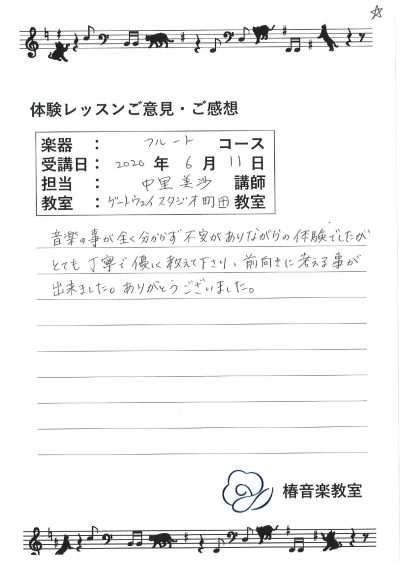 体験レッスンご意見・ご感想
楽器 : フルート コース
受講日: 2020 年 6 月 11 日
担当 : 中里 美沙 講師
教室 : ゲートウェイスタジオ町田 教室
音楽の事が全く分からず不安がありながらの体験でしたが
とても丁寧で優しく教えて下さり、前向きに考える事が
出来ました。ありがとうございました。
椿音楽教室